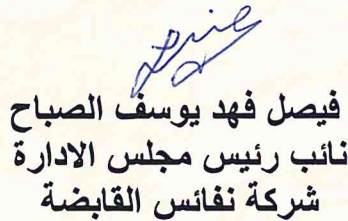 فيصل فهد يوسف الصباح
نائب رئيس مجلس الادارة
شركة نفائس القابضة